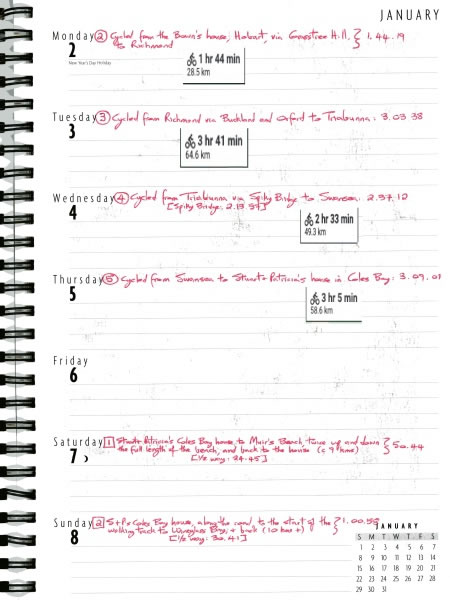 JANUARY
Monday ② Cycled from the Bowin's house, Hobart, via Grasstree Hill, } 1.44.19
2 to Richmond
New Year's Day Holiday
1 hr 44 min
28.5 km
Tuesday ③ Cycled from Richmond via Buckland and Orford to Triabunna: 3.03 38
3
3 hr 41 min
64.6 km
Wednesday ④ Cycled from Triabunna via Spiky Bridge to Swansea: 2.37.12
4 [Spiky Bridge: 2.13.39]
2 hr 33 min
49.3 km
Thursday ⑤ Cycled from Swansea to Stuart + Patricia's house in Coles Bay: 3.09.01
5
3 hr 5 min
58.6 km
Friday
6
Saturday 1 Stuart + Patricia's Coles Bay house, to Muir's Beach, twice up and down } 50.44
7 the full length of the beach, and back to the house (c 9 kms)
[1/2 way: 24.45]
Sunday 2 S+P's Coles Bay house, along the road, to the start of the } 1.00.58
8 walking track to Wineglass Bay, + back (10 kms +)
[1/2 way: 30.41]
JANUARY
S M T W T F S
1 2 3 4 5 6 7
8 9 10 11 12 13 14
15 16 17 18 19 20 21
22 23 24 25 26 27 28
29 30 31